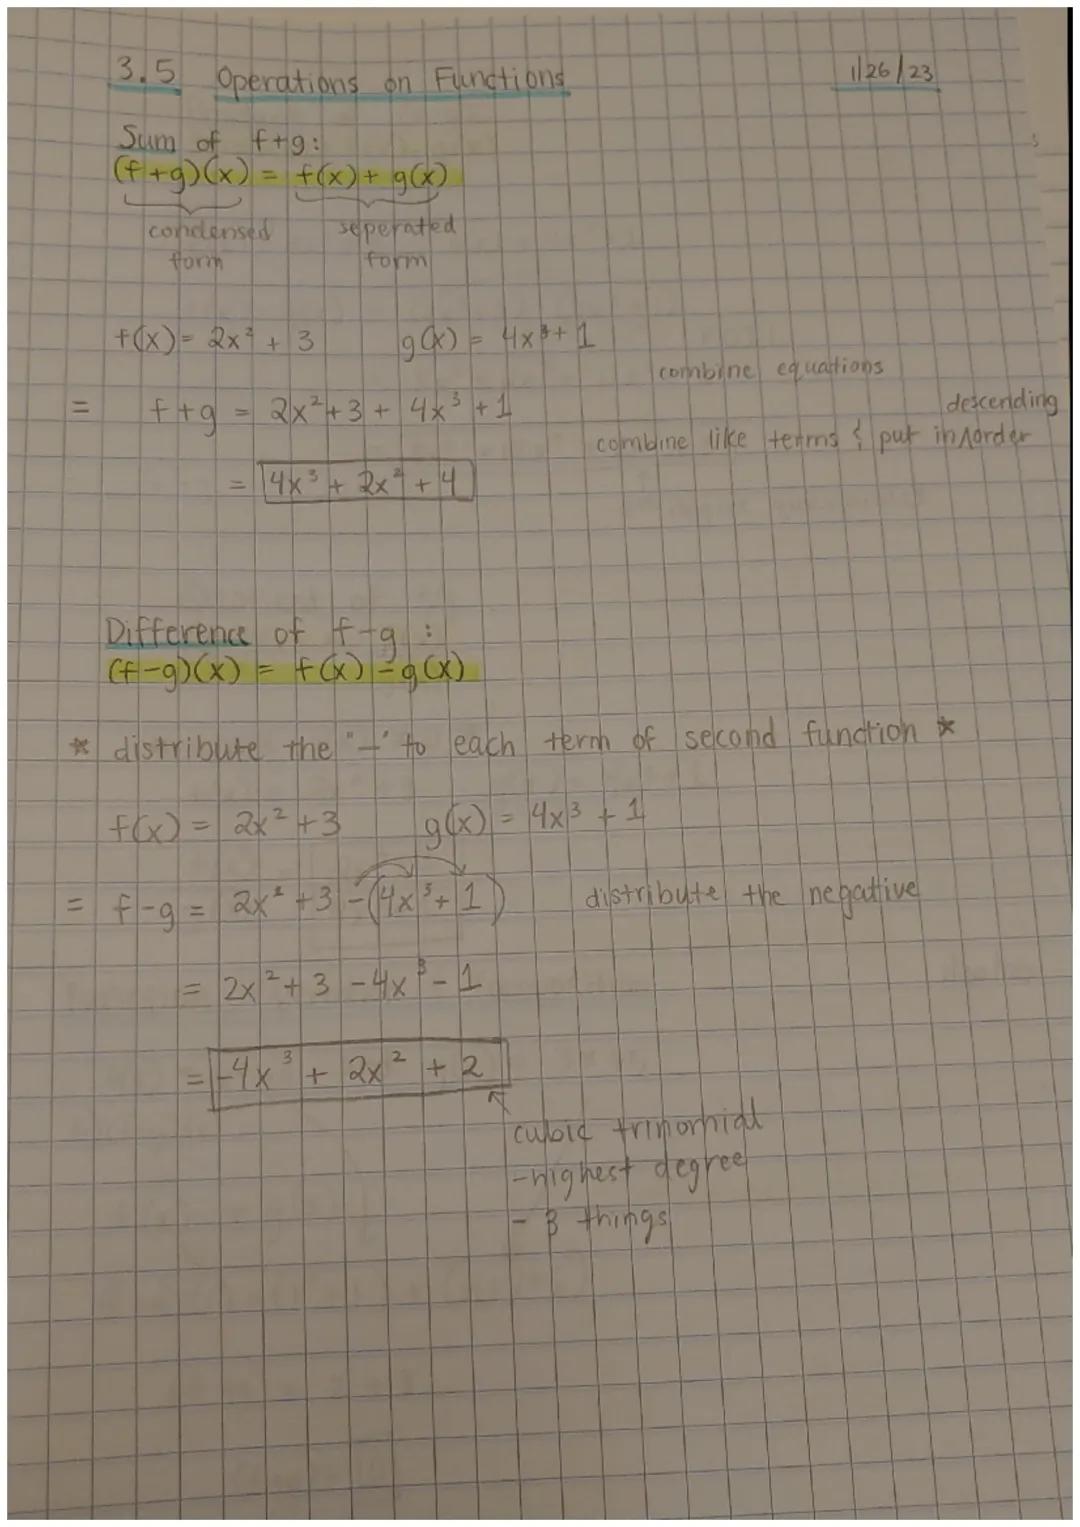 3.5 Operations on Functions 1/26/23
Sum of f+g:
(f+g)(x) = f(x) + g(x)
condensed form seperated form
f(x) = 2x² + 3 g(x) = 4x³ + 1
combine equations
= f+g = 2x² + 3 + 4x³ + 1
combine like terms & put in descending order
= 4x³ + 2x² + 4
Difference of f-g :
(f-g)(x) = f(x) - g(x)
* distribute the "-" to each term of second function *
f(x) = 2x² + 3 g(x) = 4x³ + 1
= f-g = 2x² + 3 - (4x³ + 1) distribute the negative
= 2x² + 3 - 4x³ - 1
= -4x³ + 2x² + 2
cubic trinomial
- highest degree
- 3 things